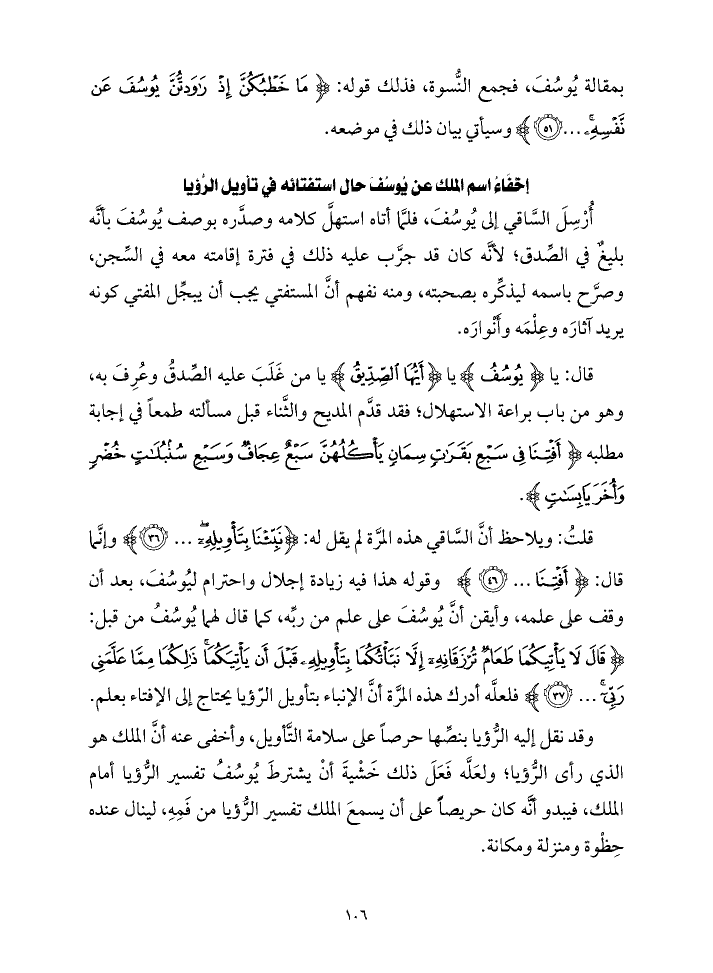 بمقالة يُوسُفَ، فجمع النُّسوة، فذلك قوله: ﴿ مَا خَطْبُكُنَّ إِذْ رَٰوَدتُّنَّ يُوسُفَ عَن
نَّفْسِهِۦۚ ... ٥١ ﴾ وسيأتي بيان ذلك في موضعه.
إخفَاءُ اسم الملك عن يُوسُفَ حال استفتائه في تأويل الرُّؤيا
أُرْسِلَ السَّاقي إلى يُوسُفَ، فلمَّا أتاه استهلَّ كلامه وصدَّره بوصف يُوسُفَ بأنَّه
بليغٌ في الصِّدق؛ لأنَّه كان قد جرَّب عليه ذلك في فترة إقامته معه في السِّجن،
وصرَّح باسمه ليذكِّره بصحبته، ومنه نفهم أنَّ المستفتي يجب أن يبجِّل المفتي كونه
يريد آثارَه وعِلْمَه وأَنْوارَه.
قال: يا ﴿ يُوسُفُ ﴾ يا ﴿ أَيُّهَا ٱلصِّدِّيقُ ﴾ يا من غَلَبَ عليه الصِّدقُ وعُرِفَ به،
وهو من باب براعة الاستهلال؛ فقد قدَّم المديح والثَّناء قبل مسألته طمعاً في إجابة
مطلبه ﴿ أَفْتِنَا فِى سَبْعِ بَقَرَٰتٍ سِمَانٍ يَأْكُلُهُنَّ سَبْعٌ عِجَافٌ وَسَبْعِ سُنۢبُلَٰتٍ خُضْرٍ
وَأُخَرَ يَابِسَٰتٍ ﴾.
قلتُ: ويلاحظ أنَّ السَّاقي هذه المرَّة لم يقل له: ﴿ نَبِّئْنَا بِتَأْوِيلِهِۦٓ ... ٣٦ ﴾ وإنَّما
قال: ﴿ أَفْتِنَا ... ٤٦ ﴾ وقوله هذا فيه زيادة إجلال واحترام ليُوسُفَ، بعد أن
وقف على علمه، وأيقن أنَّ يُوسُفَ على علم من ربِّه، كما قال لهما يُوسُفُ من قبل:
﴿ قَالَ لَا يَأْتِيكُمَا طَعَامٌ تُرْزَقَانِهِۦٓ إِلَّا نَبَّأْتُكُمَا بِتَأْوِيلِهِۦ قَبْلَ أَن يَأْتِيَكُمَاۚ ذَٰلِكُمَا مِمَّا عَلَّمَنِى
رَبِّىٓۚ ... ٣٧ ﴾ فلعلَّه أدرك هذه المرَّة أنَّ الإنباء بتأويل الرّؤيا يحتاج إلى الإفتاء بعلم.
وقد نقل إليه الرُّؤيا بنصِّها حرصاً على سلامة التَّأويل، وأخفى عنه أنَّ الملك هو
الذي رأى الرُّؤيا؛ ولعلَّه فَعَلَ ذلك خَشْيةَ أنْ يشترطَ يُوسُفُ تفسير الرُّؤيا أمام
الملك، فيبدو أنَّه كان حريصاً على أن يسمعَ الملك تفسير الرُّؤيا من فَمِهِ، لينال عنده
حِظْوة ومنزلة ومكانة.
١٠٦